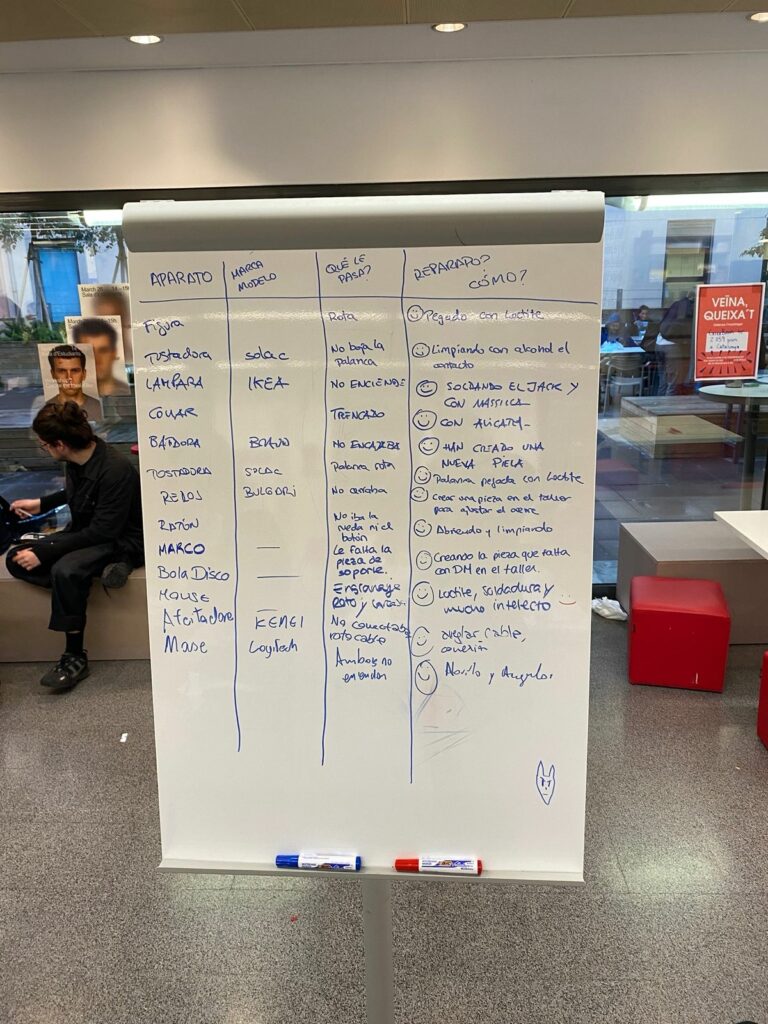 APARATO MARCA MODELO QUÉ LE PASA? REPARADO? CÓMO?
Figura Rota Pegado con Loctite
Tostadora solac No baja la palanca Limpiando con alcohol el contacto
LAMPARA IKEA NO ENCIENDE SOLDANDO EL JACK Y CON MASSILLA
COLLAR TRENCADO CON ALICATA
BATIDORA BRAUN NO ENCAJABA HAN CREADO UNA NUEVA PIEZA
TOSTADORA SOLAC Palanca rota Palanca pegada con Loctite
RELOJ BULGARI No cerraba Crear una pieza en el taller para ajustar el cierre
RATÓN No iba la rueda ni el botón Abriendo y limpiando
MARCO — Le falta la pieza de soporte. Creando la pieza que falta con DM en el taller.
Bola Disco — Engranaje roto y Loctite, soldadura y mucho intelecto
MOUSE —
Afeitadora KEMEI No conectaba roto cable cable, conexión
Mouse Logitech Ambos no Abrirlo y
March 25 14–15h
Sala
VEÏNA,
QUEIXA'T